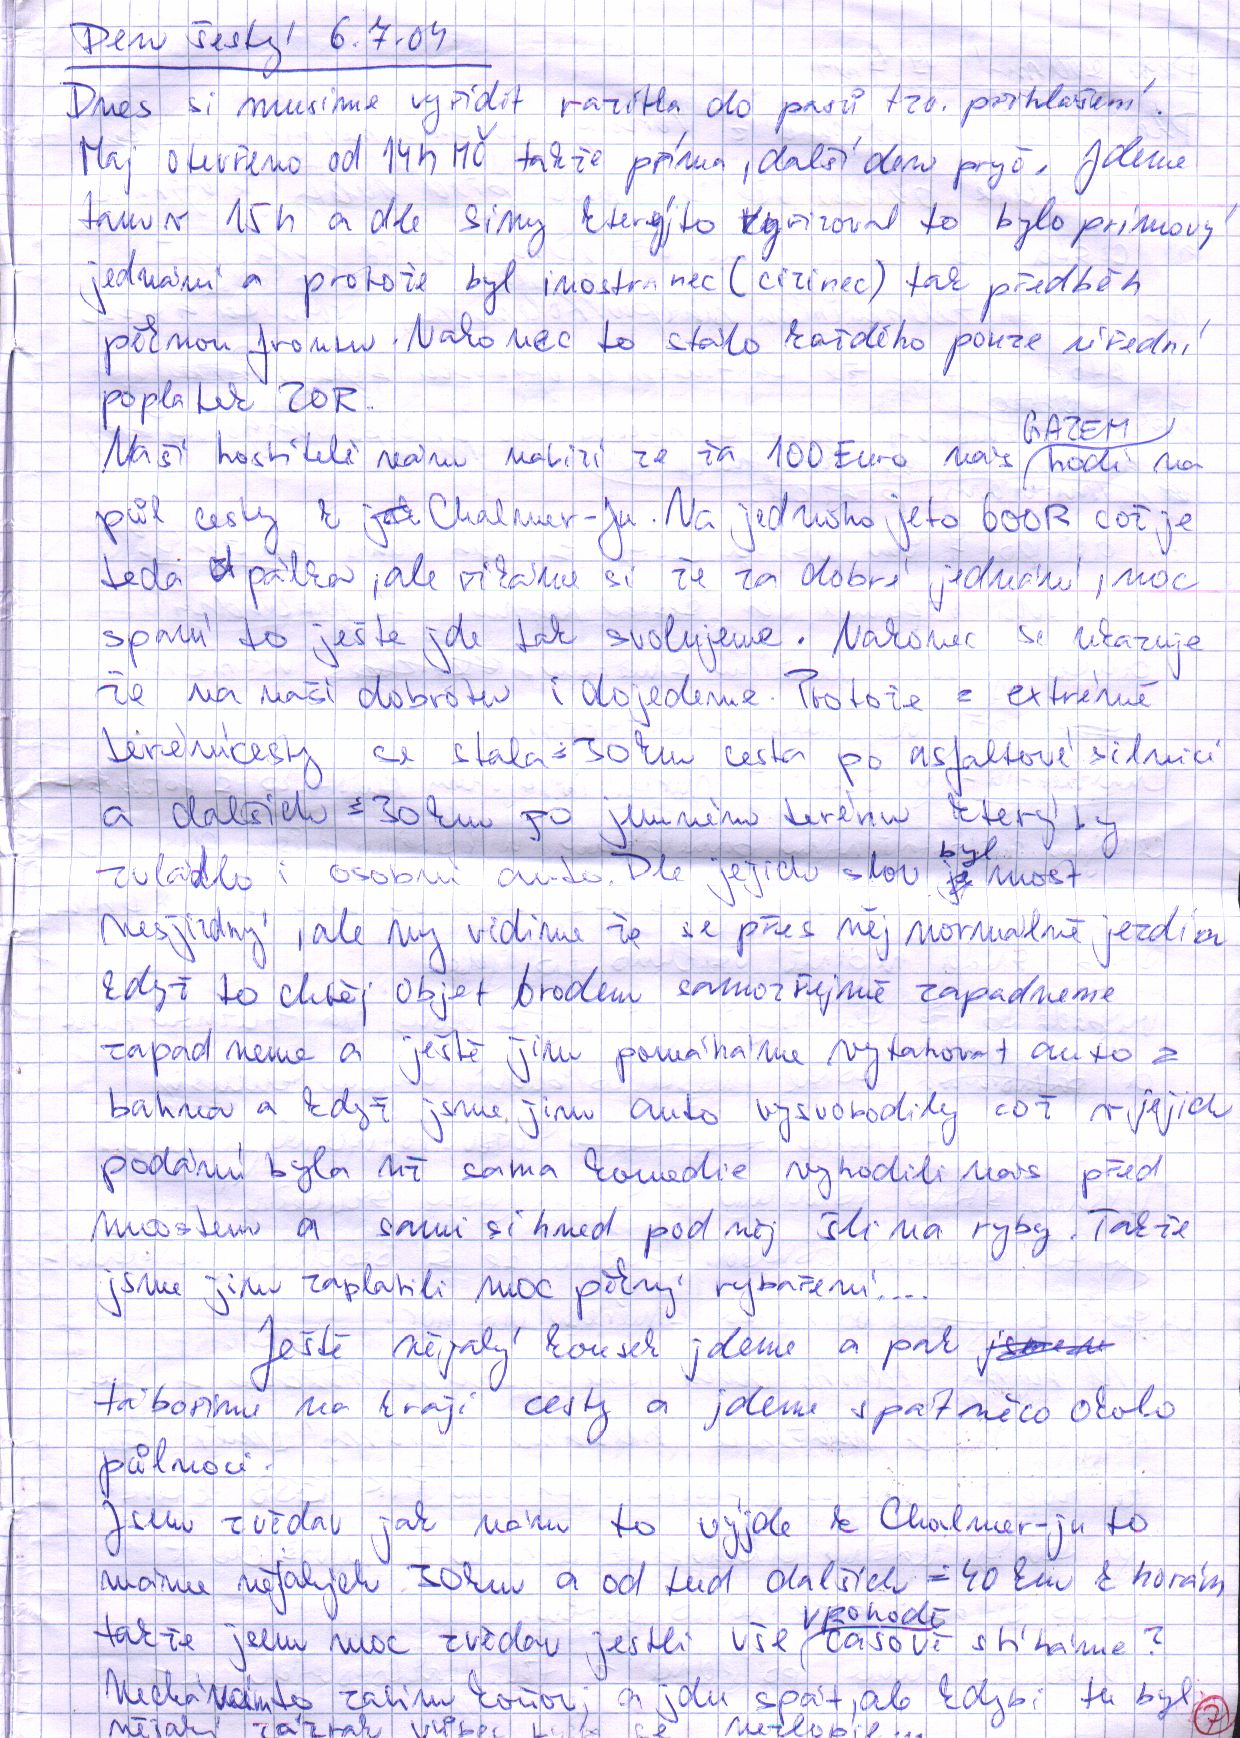 Den šestý 6.7.04
Dnes si musíme vyřídit razítka do pasů tzv. přihlášení.
Maj otevřeno od 14h MČ takže príma, další den pryč. Jdeme
tam v 15h a dle Simy který to vyřizoval to bylo prímový
jednání a protože byl inostranec (cizinec) tak předběh
pěknou frontu. Nakonec to stálo každého pouze úřední
poplatek 20R.
Naši hostitelé nám nabízí že za 100 Euro nás GAZEM hodí na
půl cesty k Chalmer-Ju. Na jednoho je to 600R což je
teda pálka, ale říkáme si že za dobré jednání, moc
spaní to ještě jde tak svolujeme. Nakonec se ukazuje
že na naši dobrotu i dojedeme. Protože z extrémě
terénní cesty se stala ± 30km cesta po asfaltové silnici
a dalších ± 30km po jemném terénu který by
zvládlo i osobní auto. Dle jejich slov byl most
nesjízdný, ale my vidíme že se přes něj normálně jezdí a
když to chtěj objet brodem samozřejmě zapadneme
zapadneme a ještě jim pomáháme vytahovat auto z
bahna a když jsme jim auto vysvobodily což v jejich
podání byla už sama komedie vyhodili nás před
mostem a sami si hned pod něj šli na ryby. Takže
jsme jim zaplatili moc pěkný rybaření....
Ještě nějaký kousek jdeme a pak
táboříme na kraji cesty a jdeme spát něco okolo
půlnoci.
Jsem zvědav jak nám to vyjde k Chalmer-ju to
máme nějakých 30km a od tud dalších ± 40km k horám
takže jsem moc zvědav jestli vše vpohodě časově stíháme?
Nechávám to zatím koňovi a jdu spát, ale kdybi tu byl
nějaký zázrak vůbec bych se nezlobil...
7